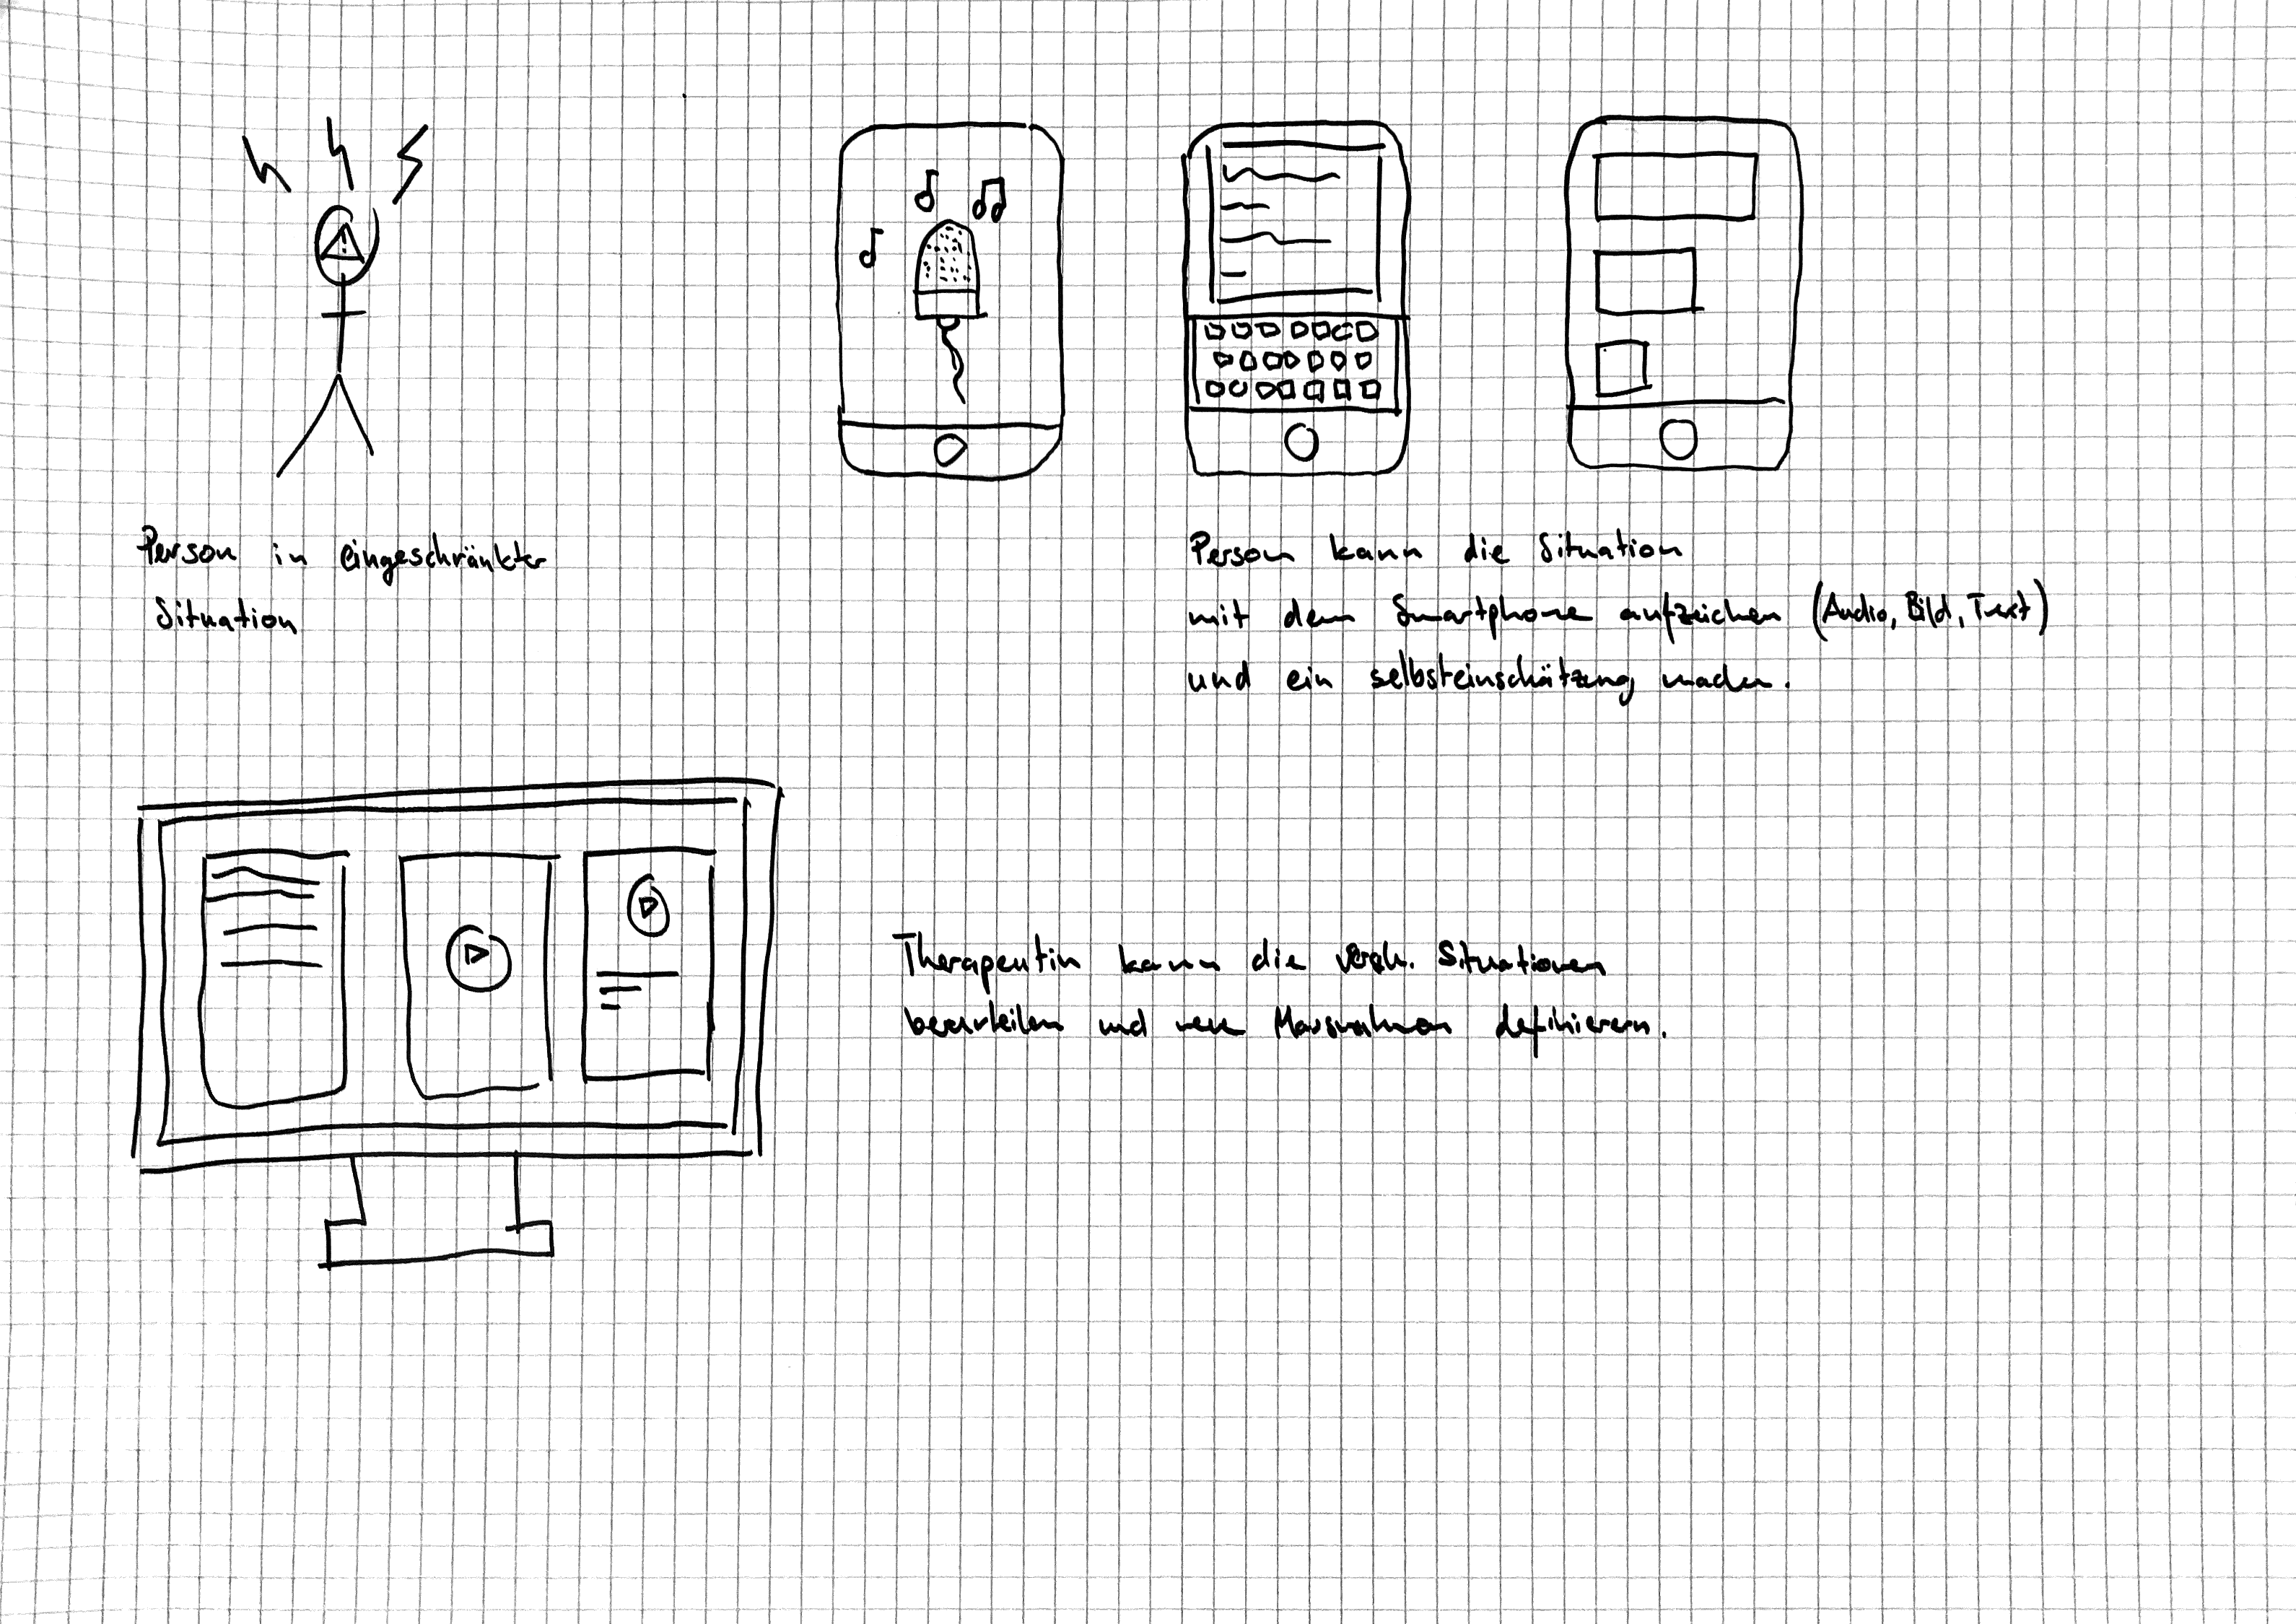 Person in eingeschränkter
Situation
Person kann die Situation
mit dem Smartphone aufzeichen (Audio, Bild, Text)
und ein selbsteinschätzung machen.
Therapeutin kann die Situationen
beurteilen und neue Massnahmen definieren.